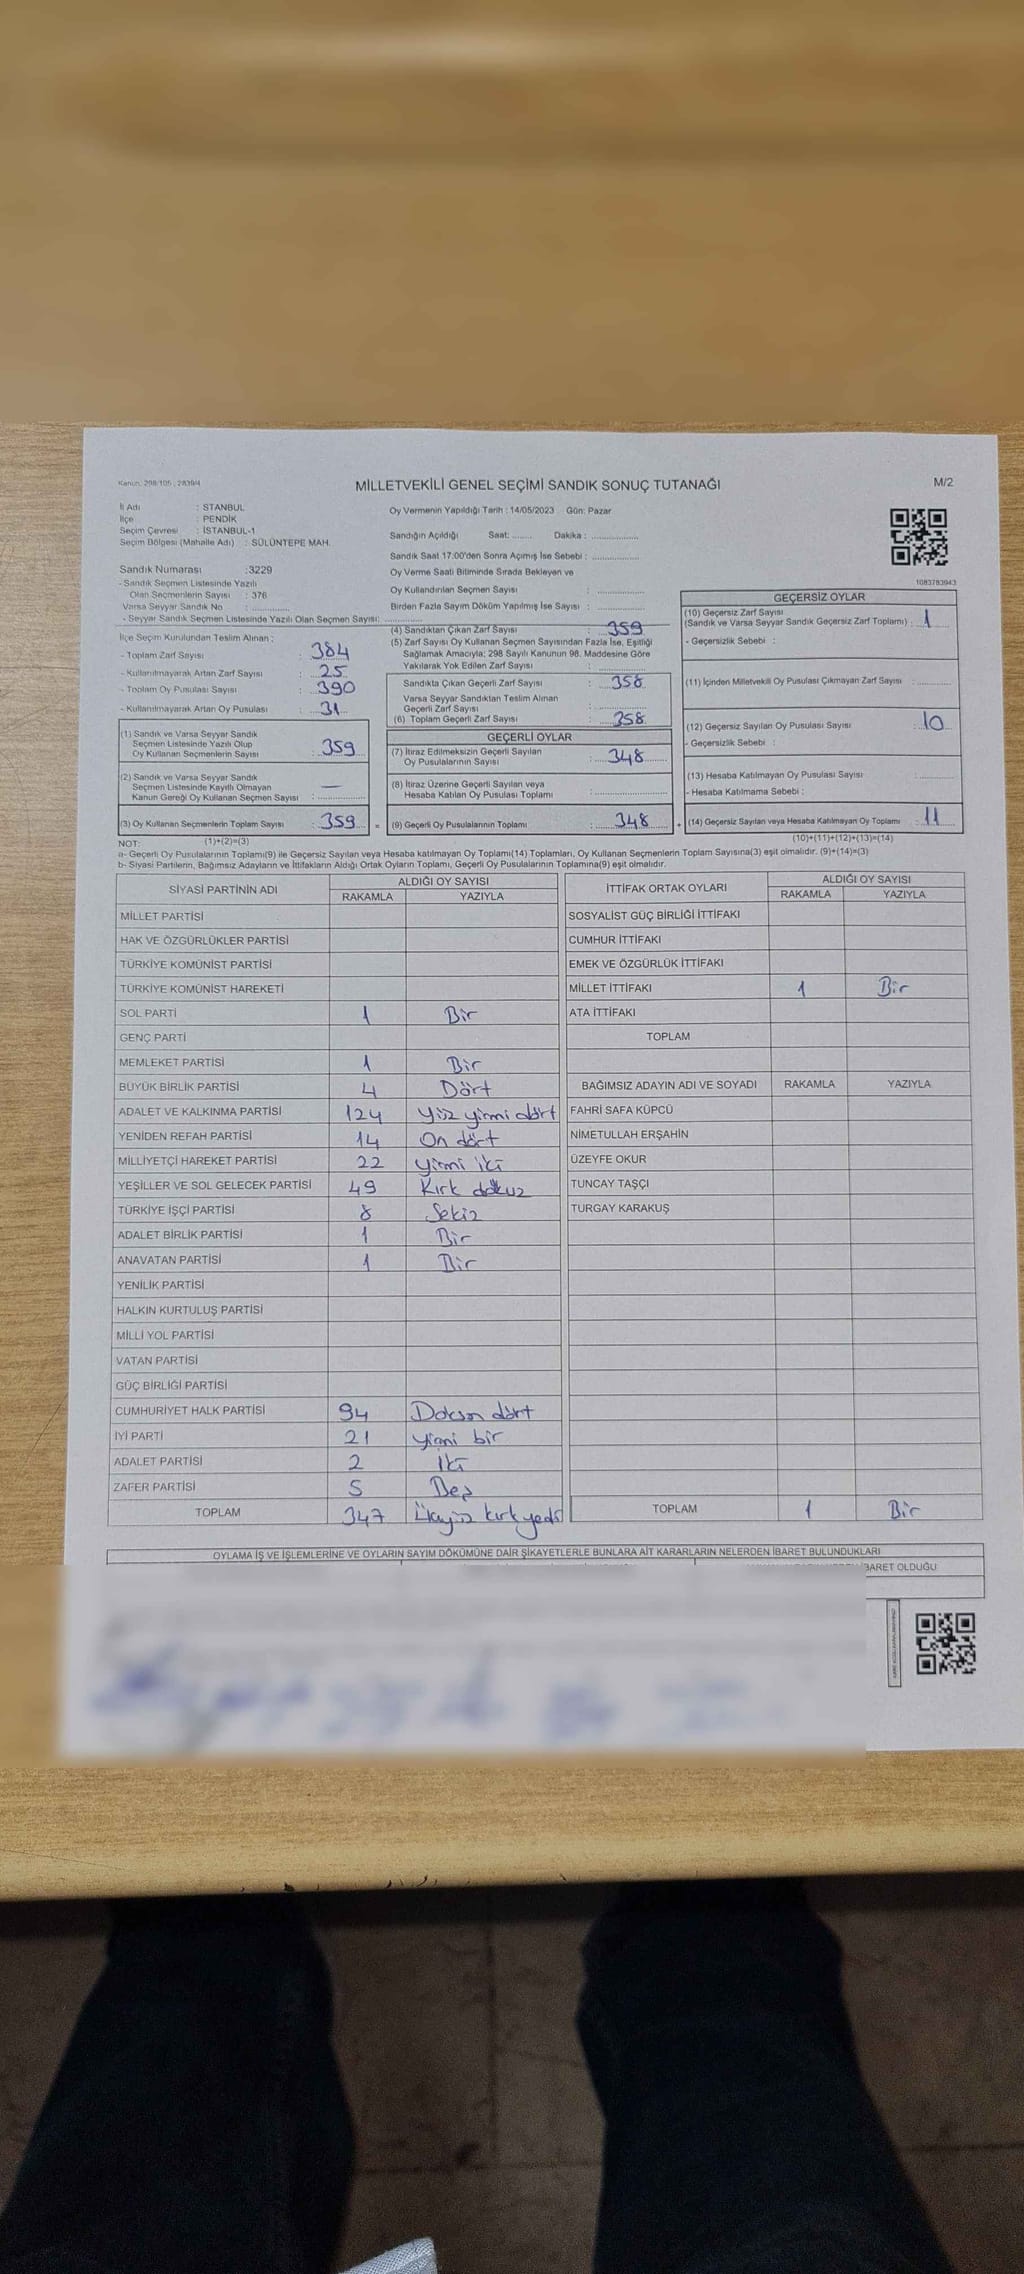 Kanun: 298/105 , 2839/4
MİLLETVEKİLİ GENEL SEÇİMİ SANDIK SONUÇ TUTANAĞI
M/2
İl Adı : STANBUL
İlçe : PENDİK
Seçim Çevresi : İSTANBUL-1
Seçim Bölgesi (Mahalle Adı) : SÜLÜNTEPE MAH.
Sandık Numarası :3229
- Sandık Seçmen Listesinde Yazılı
Olan Seçmenlerin Sayısı : 376
Varsa Seyyar Sandık No : ..............
- Seyyar Sandık Seçmen Listesinde Yazılı Olan Seçmen Sayısı: ..............
Oy Vermenin Yapıldığı Tarih : 14/05/2023 Gün: Pazar
Sandığın Açıldığı Saat: ....... Dakika : ................
Sandık Saat 17:00'den Sonra Açımış İse Sebebi : ................
Oy Verme Saati Bitiminde Sırada Bekleyen ve
Oy Kullandırılan Seçmen Sayısı : ................
Birden Fazla Sayım Döküm Yapılmış İse Sayısı : ................
1083783943
İlçe Seçim Kurulundan Teslim Alınan ;
- Toplam Zarf Sayısı : 384
- Kullanılmayarak Artan Zarf Sayısı : 25
- Toplam Oy Pusulası Sayısı : 390
- Kullanılmayarak Artan Oy Pusulası : 31
(1) Sandık ve Varsa Seyyar Sandık
Seçmen Listesinde Yazılı Olup
Oy Kullanan Seçmenlerin Sayısı : 359
(2) Sandık ve Varsa Seyyar Sandık
Seçmen Listesinde Kayıtlı Olmayan
Kanun Gereği Oy Kullanan Seçmen Sayısı : —
(3) Oy Kullanan Seçmenlerin Toplam Sayısı : 359 =
(1)+(2)=(3)
(4) Sandıktan Çıkan Zarf Sayısı : 359
(5) Zarf Sayısı Oy Kullanan Seçmen Sayısından Fazla İse, Eşitliği
Sağlamak Amacıyla; 298 Sayılı Kanunun 98. Maddesine Göre
Yakılarak Yok Edilen Zarf Sayısı : ................
Sandıkta Çıkan Geçerli Zarf Sayısı : 358
Varsa Seyyar Sandıktan Teslim Alınan
Geçerli Zarf Sayısı : ................
(6) Toplam Geçerli Zarf Sayısı : 358
GEÇERLİ OYLAR
(7) İtiraz Edilmeksizin Geçerli Sayılan
Oy Pusulalarının Sayısı : 348
(8) İtiraz Üzerine Geçerli Sayılan veya
Hesaba Katılan Oy Pusulası Toplamı : ................
(9) Geçerli Oy Pusulalarının Toplamı : 348 +
GEÇERSİZ OYLAR
(10) Geçersiz Zarf Sayısı
(Sandık ve Varsa Seyyar Sandık Geçersiz Zarf Toplamı) : 1
- Geçersizlik Sebebi :
(11) İçinden Milletvekili Oy Pusulası Çıkmayan Zarf Sayısı : ..............
(12) Geçersiz Sayılan Oy Pusulası Sayısı : 10
- Geçersizlik Sebebi :
(13) Hesaba Katılmayan Oy Pusulası Sayısı : ..............
- Hesaba Katılmama Sebebi :
(14) Geçersiz Sayılan veya Hesaba Katılmayan Oy Toplamı : 11
(10)+(11)+(12)+(13)=(14)
NOT:
a- Geçerli Oy Pusulalarının Toplamı(9) ile Geçersiz Sayılan veya Hesaba katılmayan Oy Toplamı(14) Toplamları, Oy Kullanan Seçmenlerin Toplam Sayısına(3) eşit olmalıdır. (9)+(14)=(3)
b- Siyasi Partilerin, Bağımsız Adayların ve İttifakların Aldığı Ortak Oyların Toplamı, Geçerli Oy Pusulalarının Toplamına(9) eşit olmalıdır.
SİYASİ PARTİNİN ADI ALDIĞI OY SAYISI
RAKAMLA YAZIYLA
MİLLET PARTİSİ
HAK VE ÖZGÜRLÜKLER PARTİSİ
TÜRKİYE KOMÜNİST PARTİSİ
TÜRKİYE KOMÜNİST HAREKETİ
SOL PARTİ 1 Bir
GENÇ PARTİ
MEMLEKET PARTİSİ 1 Bir
BÜYÜK BİRLİK PARTİSİ 4 Dört
ADALET VE KALKINMA PARTİSİ 124 Yüz yirmi dört
YENİDEN REFAH PARTİSİ 14 On dört
MİLLİYETÇİ HAREKET PARTİSİ 22 Yirmi iki
YEŞİLLER VE SOL GELECEK PARTİSİ 49 Kırk dokuz
TÜRKİYE İŞÇİ PARTİSİ 8 Sekiz
ADALET BİRLİK PARTİSİ 1 Bir
ANAVATAN PARTİSİ 1 Bir
YENİLİK PARTİSİ
HALKIN KURTULUŞ PARTİSİ
MİLLİ YOL PARTİSİ
VATAN PARTİSİ
GÜÇ BİRLİĞİ PARTİSİ
CUMHURİYET HALK PARTİSİ 94 Doksan dört
İYİ PARTİ 21 Yirmi bir
ADALET PARTİSİ 2 İki
ZAFER PARTİSİ 5 Beş
TOPLAM 347 Üçyüz kırk yedi
İTTİFAK ORTAK OYLARI ALDIĞI OY SAYISI
RAKAMLA YAZIYLA
SOSYALİST GÜÇ BİRLİĞİ İTTİFAKI
CUMHUR İTTİFAKI
EMEK VE ÖZGÜRLÜK İTTİFAKI
MİLLET İTTİFAKI 1 Bir
ATA İTTİFAKI
TOPLAM
BAĞIMSIZ ADAYIN ADI VE SOYADI RAKAMLA YAZIYLA
FAHRİ SAFA KÜPCÜ
NİMETULLAH ERŞAHİN
ÜZEYFE OKUR
TUNCAY TAŞÇI
TURGAY KARAKUŞ
TOPLAM 1 Bir
OYLAMA İŞ VE İŞLEMLERİNE VE OYLARIN SAYIM DÖKÜMÜNE DAİR ŞİKAYETLERLE BUNLARA AİT KARARLARIN NELERDEN İBARET BULUNDUKLARI
İBARET OLDUĞU